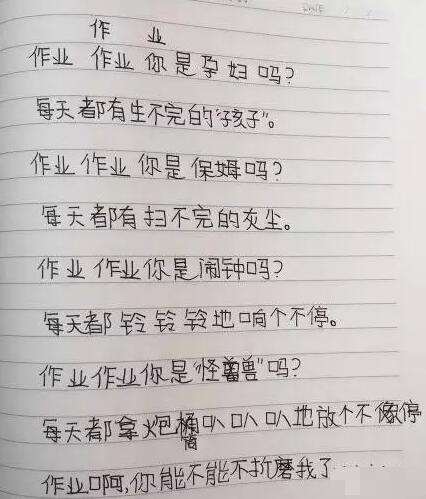 DATE
作 业
作业 作业 你是孕妇吗?
每天都有生不完的“孩子”。
作业作业 你是保姆吗?
每天都有扫不完的灰尘。
作业作业你是闹钟吗?
每天都铃铃铃地响个不停。
作业作业你是“怪兽”吗?
每天都拿炮桶叭叭叭地放个不停
作业啊,你能不能不折磨我了……